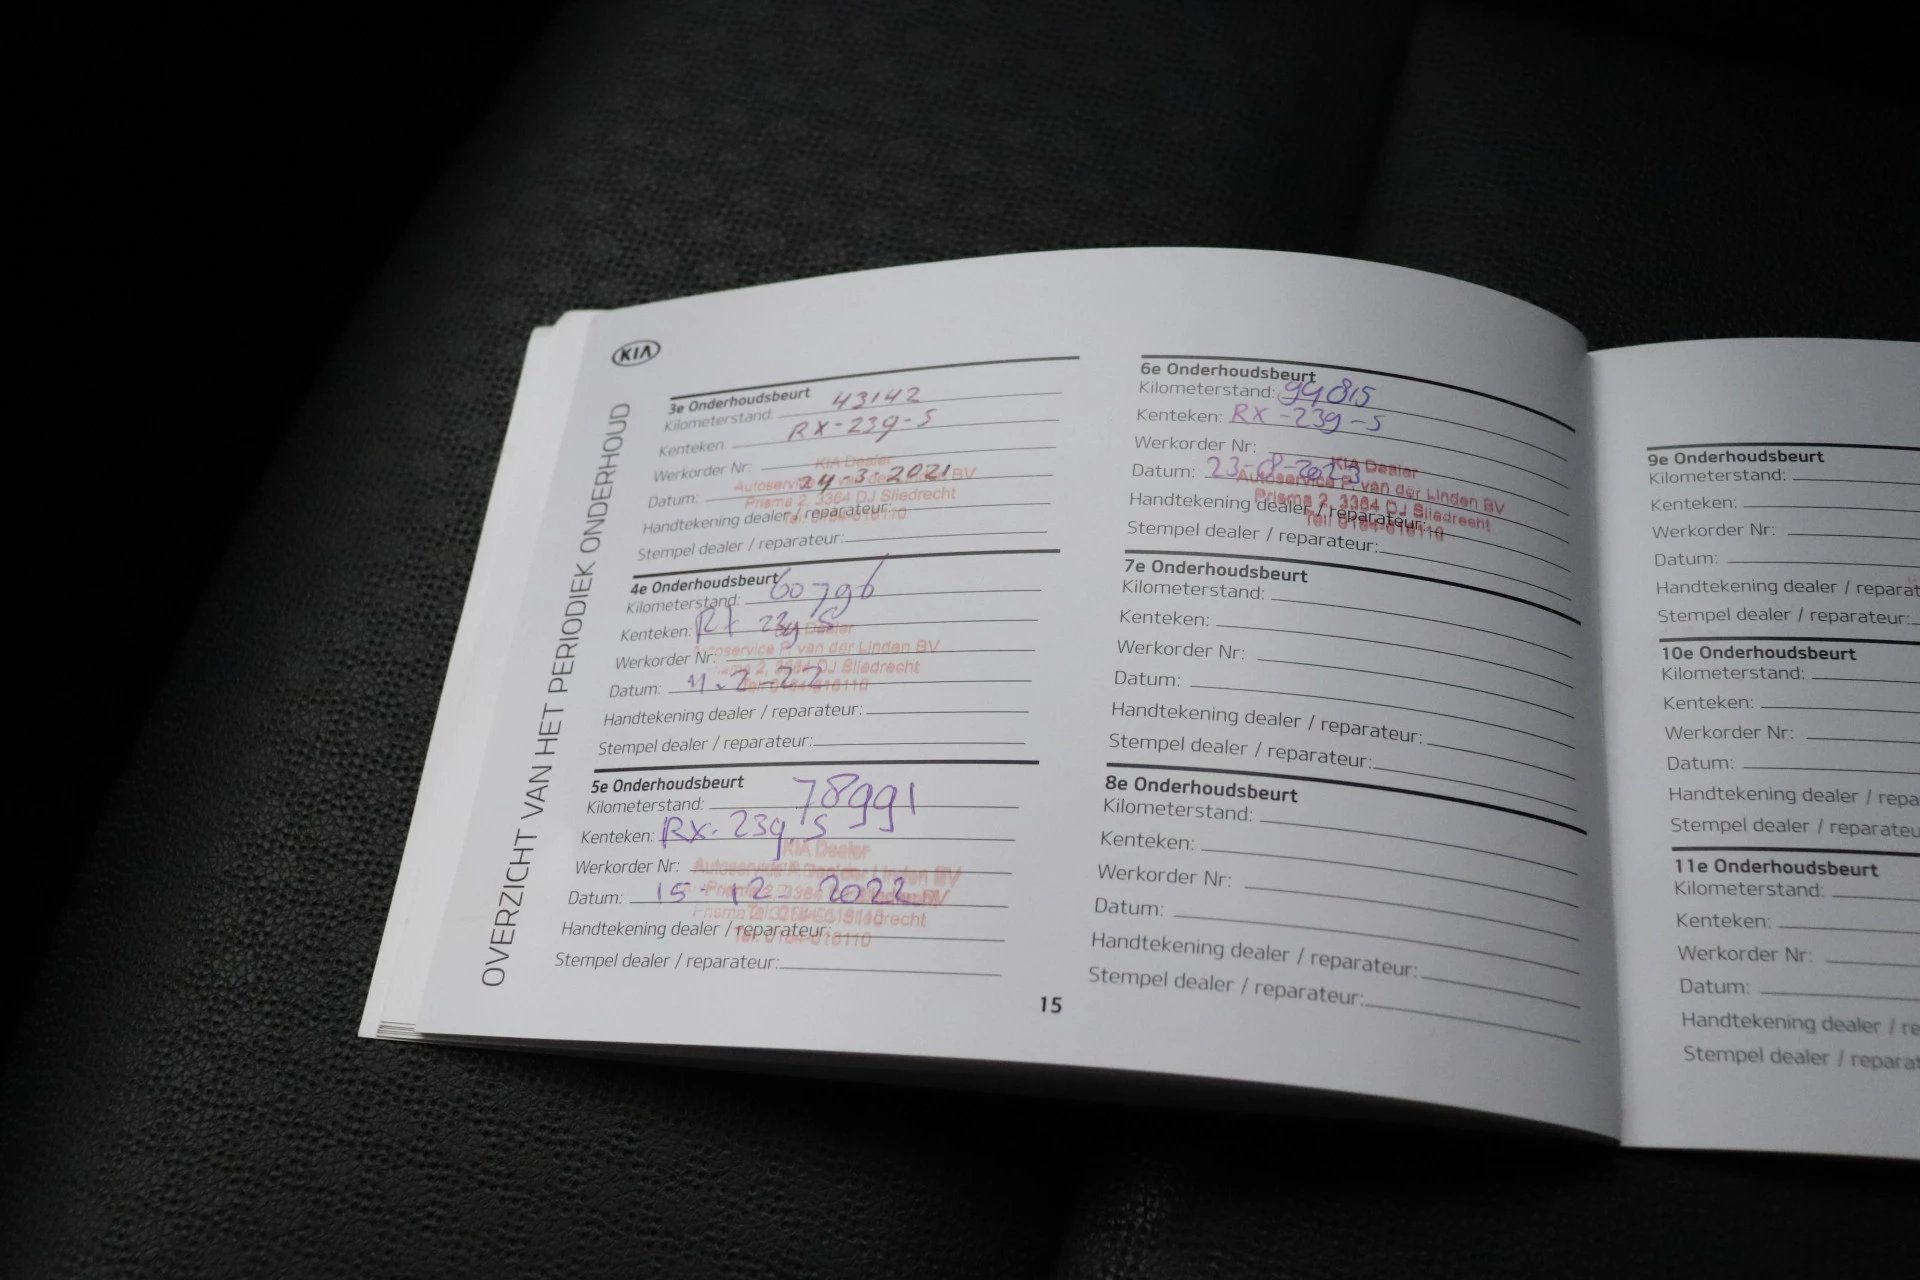 KIA
OVERZICHT VAN HET PERIODIEK ONDERHOUD
3e Onderhoudsbeurt
Kilometerstand: 43142
Kenteken: RX-239-S
Werkorder Nr:
KIA Dealer
Datum: 24-3-2021
Autoservice P. van der Linden BV
Prisma 2, 3364 DJ Sliedrecht
Handtekening dealer / reparateur:
Tel. 0184-616110
Stempel dealer / reparateur:
4e Onderhoudsbeurt
Kilometerstand: 60796
Kenteken: RX 239 S
Dealer
Autoservice P. van der Linden BV
Werkorder Nr:
Prisma 2, 3364 DJ Sliedrecht
Datum: 2-22
Tel. 0184-616110
Handtekening dealer / reparateur:
Stempel dealer / reparateur:
5e Onderhoudsbeurt
Kilometerstand: 78991
Kenteken: RX-239 S
KIA Dealer
Werkorder Nr:
Autoservice P. van der Linden BV
Datum: 15-12-2022
Sliedrecht
Handtekening dealer / reparateur:
Tel. 0184-616110
Stempel dealer / reparateur:
6e Onderhoudsbeurt
Kilometerstand: 94815
Kenteken: RX-239-S
Werkorder Nr:
KIA Dealer
Datum: 23-08-2023
Autoservice P. van der Linden BV
Prisma 2, 3364 DJ Sliedrecht
Handtekening dealer / reparateur:
Tel. 0184-616110
Stempel dealer / reparateur:
7e Onderhoudsbeurt
Kilometerstand:
Kenteken:
Werkorder Nr:
Datum:
Handtekening dealer / reparateur:
Stempel dealer / reparateur:
8e Onderhoudsbeurt
Kilometerstand:
Kenteken:
Werkorder Nr:
Datum:
Handtekening dealer / reparateur:
Stempel dealer / reparateur:
15
9e Onderhoudsbeurt
Kilometerstand:
Kenteken:
Werkorder Nr:
Datum:
Handtekening dealer / reparat
Stempel dealer / reparateur:
10e Onderhoudsbeurt
Kilometerstand:
Kenteken:
Werkorder Nr:
Datum:
Handtekening dealer / repa
Stempel dealer / reparateu
11e Onderhoudsbeurt
Kilometerstand:
Kenteken:
Werkorder Nr:
Datum:
Handtekening dealer / re
Stempel dealer / reparat